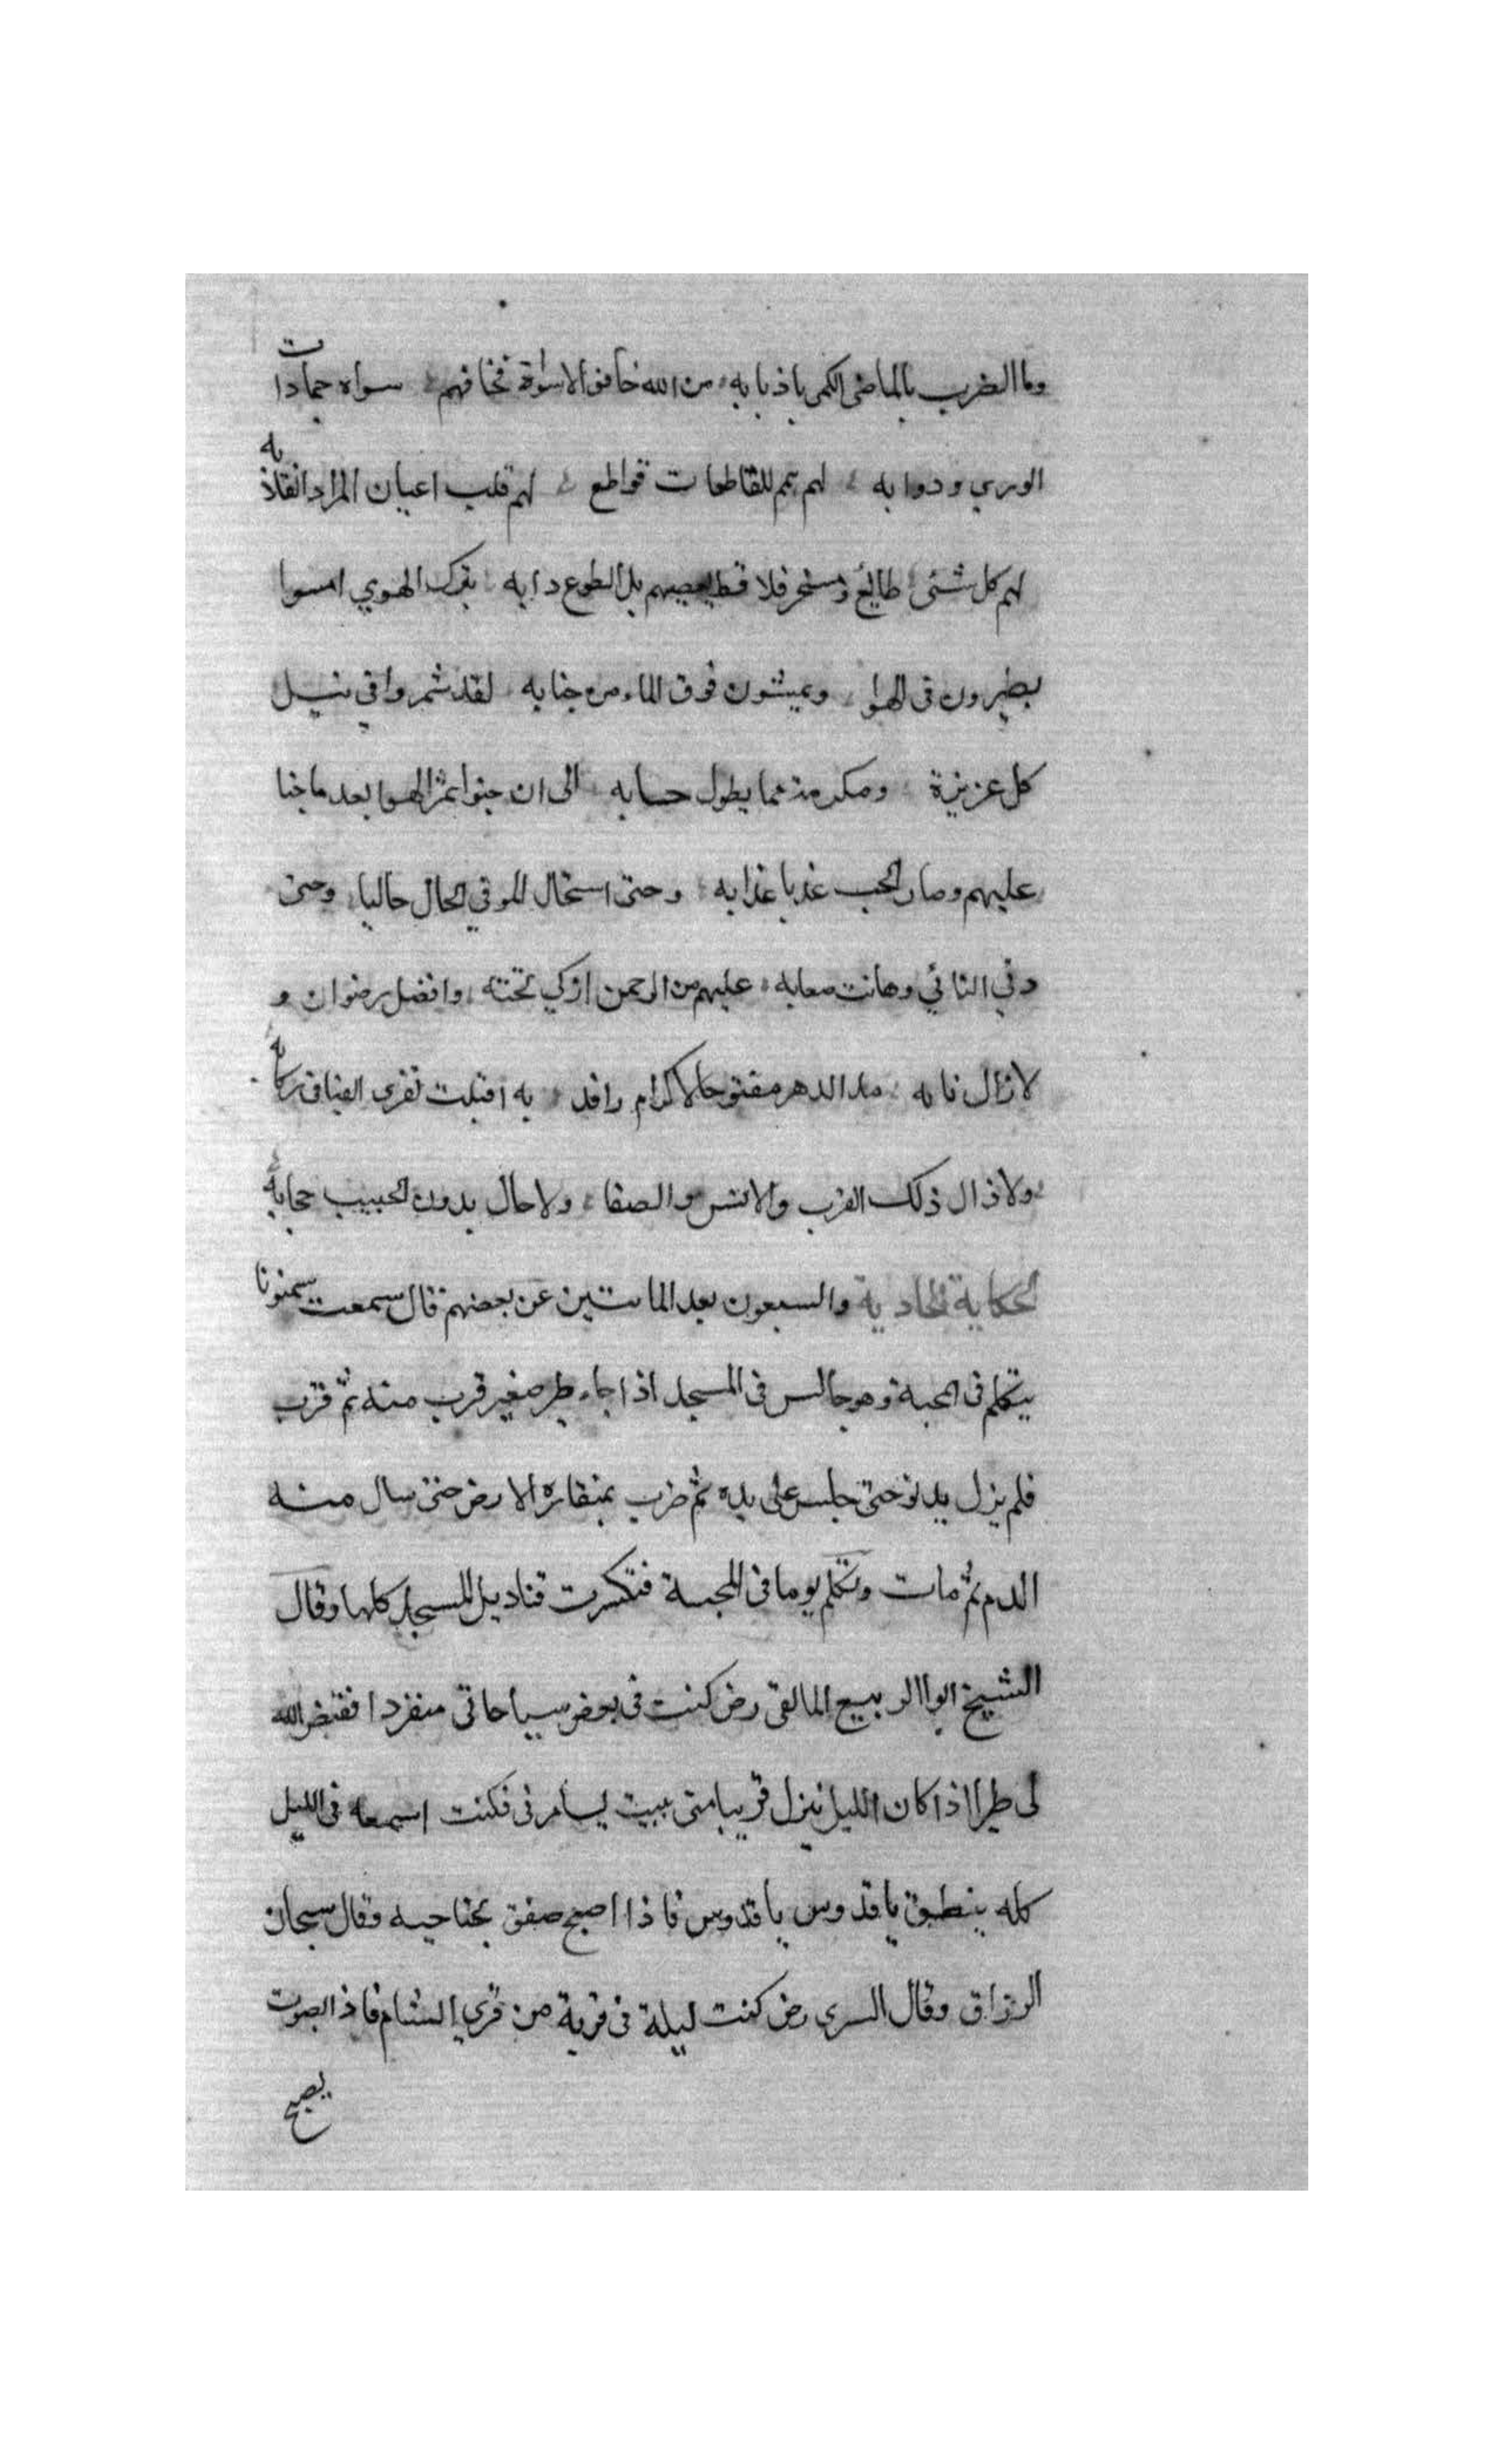 وما الضرب بالماضى الكمى باذبابه من الله خافوا لاسواه فخافهم سواه جمادات
الورى ودوابه لهم همم للقاطعات قواطع لهم قلب اعيان المراد انقلابه
لهم كل شئى طايع ومسخر فلا قط يعصيهم بل الطوع دابه بترك الهوي امسوا
يطيرون فى الهوا ويمشون فوق الماء من جنابه لقد شمروا في نيل
كل عزيزة ومكرمة مما يطول حسابه الى ان جنوا ثمر الهوا بعد ما جنا
عليهم وصار الحب عذبا عذابه وحتى استحال المر في الحال حاليا وحتى
دني النائي وهانت صعابه عليهم من الرحمن ازكي تحته وافضل رضوان و
لا زال نابه مدا الدهر مفتوحا لاكرام رافد به اقبلت تفرى الفيافى ركابه
ولا زال ذلك القرب والانس والصفا ولا حال بدون الحبيب حجابه
الحكاية الحادية والسبعون بعد المائتين عن بعضهم قال سمعت سمنونا
يتكلم فى المحبة وهو جالس فى المسجد اذا جاء طير صغير قرب منه ثم قرب
فلم يزل يدنو حتى جلس على يده ثم ضرب بمنقاره الارض حتى سال منه
الدم ثم مات وتكلم يوما فى المحبة فتكسرت قناديل المسجد كلها وقال
الشيخ ابوا الربيع المالقى رض كنت فى بعض سياحاتى منفردا فقيض الله
لى طيرا اذا كان الليل ينزل قريبا منى يبيت يسامرنى فكنت اسمعه فى الليل
كله ينطق يا قدوس يا قدوس فاذا اصبح صفق بجناحيه وقال سبحان
الرزاق وقال السرى رض كنت ليلة فى قرية من قري الشام فاذا بصوت
يصيح